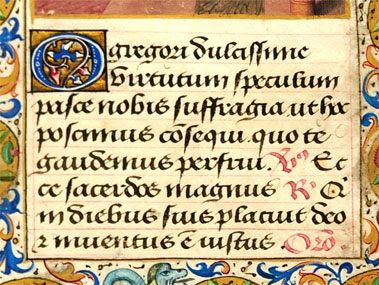 O gregori dulcissime
virtutum speculum
pasce nobis suffragia ut hec
poscimus cõsequi quo te
gaudemus perfrui. V. Ec
ce sacerdos magnus R. Q̃
in diebus suis placuit deo
z inventus ẽ iustus. Orõ.